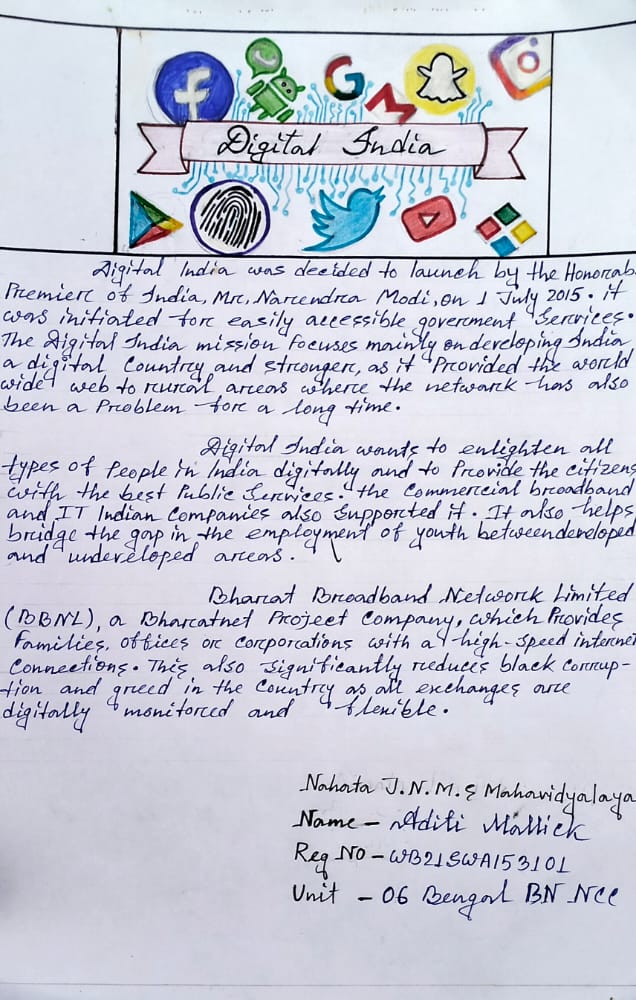 Digital India
Digital India was decided to launch by the Honorab
Premier of India, Mr. Narendra Modi, on 1 July 2015. it
was initiated for easily accessible goverment Services.
The Digital India mission Focuses mainly on developing India
a digital Country and stronger, as it Provided the world
wide web to rural areas where the network has also
been a Problem for a long time.
Digital India wants to enlighten all
types of People in India digitally and to Provide the citizens
with the best Public Services. the Commercial broadband
and IT Indian Companies also Supported it. It also helps
bridge the gap in the employment of youth between developed
and undeveloped areas.
Bharat Broadband Network Limited
(BBNL), a Bharatnet Project Company, which Provides
Families, offices or corporations with a high-Speed internet
Connections. This also Significantly reduces black corrup-
tion and greed in the Country as all exchanges are
digitally monitored and flexible.
Nahata J.N.M.S Mahavidyalaya
Name - Aditi Mallick
Reg No - WB21SWA153101
Unit - 06 Bengal BN NCC